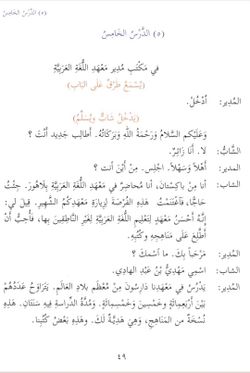 (٥) الدَّرْسُ الْخَامِسُ
(٥) الدَّرْسُ الْخَامِسُ
فِي مَكْتَبِ مُدِيرِ مَعْهَدِ اللُّغَةِ الْعَرَبِيَّةِ
(يُسْمَعُ طَرْقٌ عَلَى الْبَابِ)
المُدِير: اُدْخُلْ.
(يَدْخُلُ شَابٌّ وَيُسَلِّمُ)
المُدِير: وَعَلَيْكُم السَّلَامُ وَرَحْمَةُ اللَّهِ وَبَرَكَاتُهُ. أَطَالِبٌ جَدِيدٌ أَنْتَ ؟
الشَّابّ: لَا. أَنَا زَائِرٌ.
المدير: أَهْلاً وَسَهْلاً. اِجْلِسْ. مِنْ أَيْنَ أَنْتَ ؟
الشاب: أَنَا مِنْ بَاكِسْتَانَ، أَنَا مُحَاضِرٌ فِي مَعْهَدِ اللُّغَةِ الْعَرَبِيَّةِ بِلَاهُورَ. جِئْتُ
حَاجًّا، فَاغْتَنَمْتُ هَذِهِ الْفُرْصَةَ لِزِيَارَةِ مَعْهَدِكُمُ الشَّهِيرِ. قِيلَ لِي:
إِنَّهُ أَحْسَنُ مَعْهَدٍ لِتَعْلِيمِ اللُّغَةِ الْعَرَبِيَّةِ لِغَيْرِ النَّاطِقِينَ بِهَا، فَأُحِبُّ أَنْ
أَطَّلِعَ عَلَى مَنَاهِجِهِ وَكُتُبِهِ.
المُدِير: مَرْحَباً بِكَ. مَا اسْمُكَ ؟
الشاب: اِسْمِي مَهْدِيُّ بْنُ عَبْدِ الهَادِي.
المُدِير: يَدْرُسُ فِي مَعْهَدِنَا دَارِسُونَ مِنْ مُعْظَمِ بِلَادِ الْعَالَمِ. يَتَرَاوَحُ عَدَدُهُمْ
بَيْنَ أَرْبَعِمِائَةٍ وَخَمْسِينَ وَخَمْسِمِائَةٍ. وَمُدَّةُ الدِّرَاسَةِ فِيهِ سَنَتَانِ. هَذِهِ
نُسْخَةٌ مِن الْمَنَاهِجِ، وَهِيَ هَدِيَّةٌ لَكَ. وَهَذِهِ بَعْضُ كُتُبِنَا.
٤٩